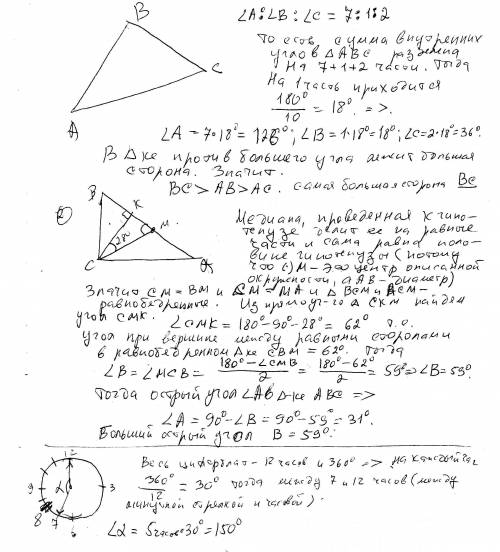 B
C
A
∠A:∠B:∠C = 7:1:2
То есть сумма внутренних
углов △ABC разбита
на 7+1+2 части. Тогда
на 1 часть приходится
180°/10 = 18° =>.
∠A = 7·18° = 126°; ∠B = 1·18° = 18°; ∠C = 2·18° = 36°.
В △ке против большего угла лежит большая
сторона. Значит.
BC > AB > AC. самая большая сторона BC
②
B
K
M
28°
C
A
Медиана, проведенная к гипо-
тенузе делит ее на равные
части и сама равна поло-
вине гипотенузы (потому
что (·)M - это центр описанной
окружности, а AB - диаметр)
Значит CM = BM и CM = MA и △BCM и ACM -
равнобедренные. Из прямоуг-го △ CKM найдем
угол CMK.
∠CMK = 180° - 90° - 28° = 62° т.о.
угол при вершине между равными сторонами
в равнобедренном △ке CBM = 62°. Тогда
∠B = ∠MCB = (180° - ∠CMB)/2 = (180° - 62°)/2 = 59° => ∠B = 59°.
Тогда острый угол ∠A в △ке ABC =>
∠A = 90° - ∠B = 90° - 59° = 31°.
Больший острый угол B = 59°.
12
9
α
3
8
7
6
Весь циферблат - 12 часов и 360° => на каждый час
360°/12 = 30° тогда между 7 и 12 часов (между
минутной стрелкой и часовой).
∠α = 5 часов·30° = 150°